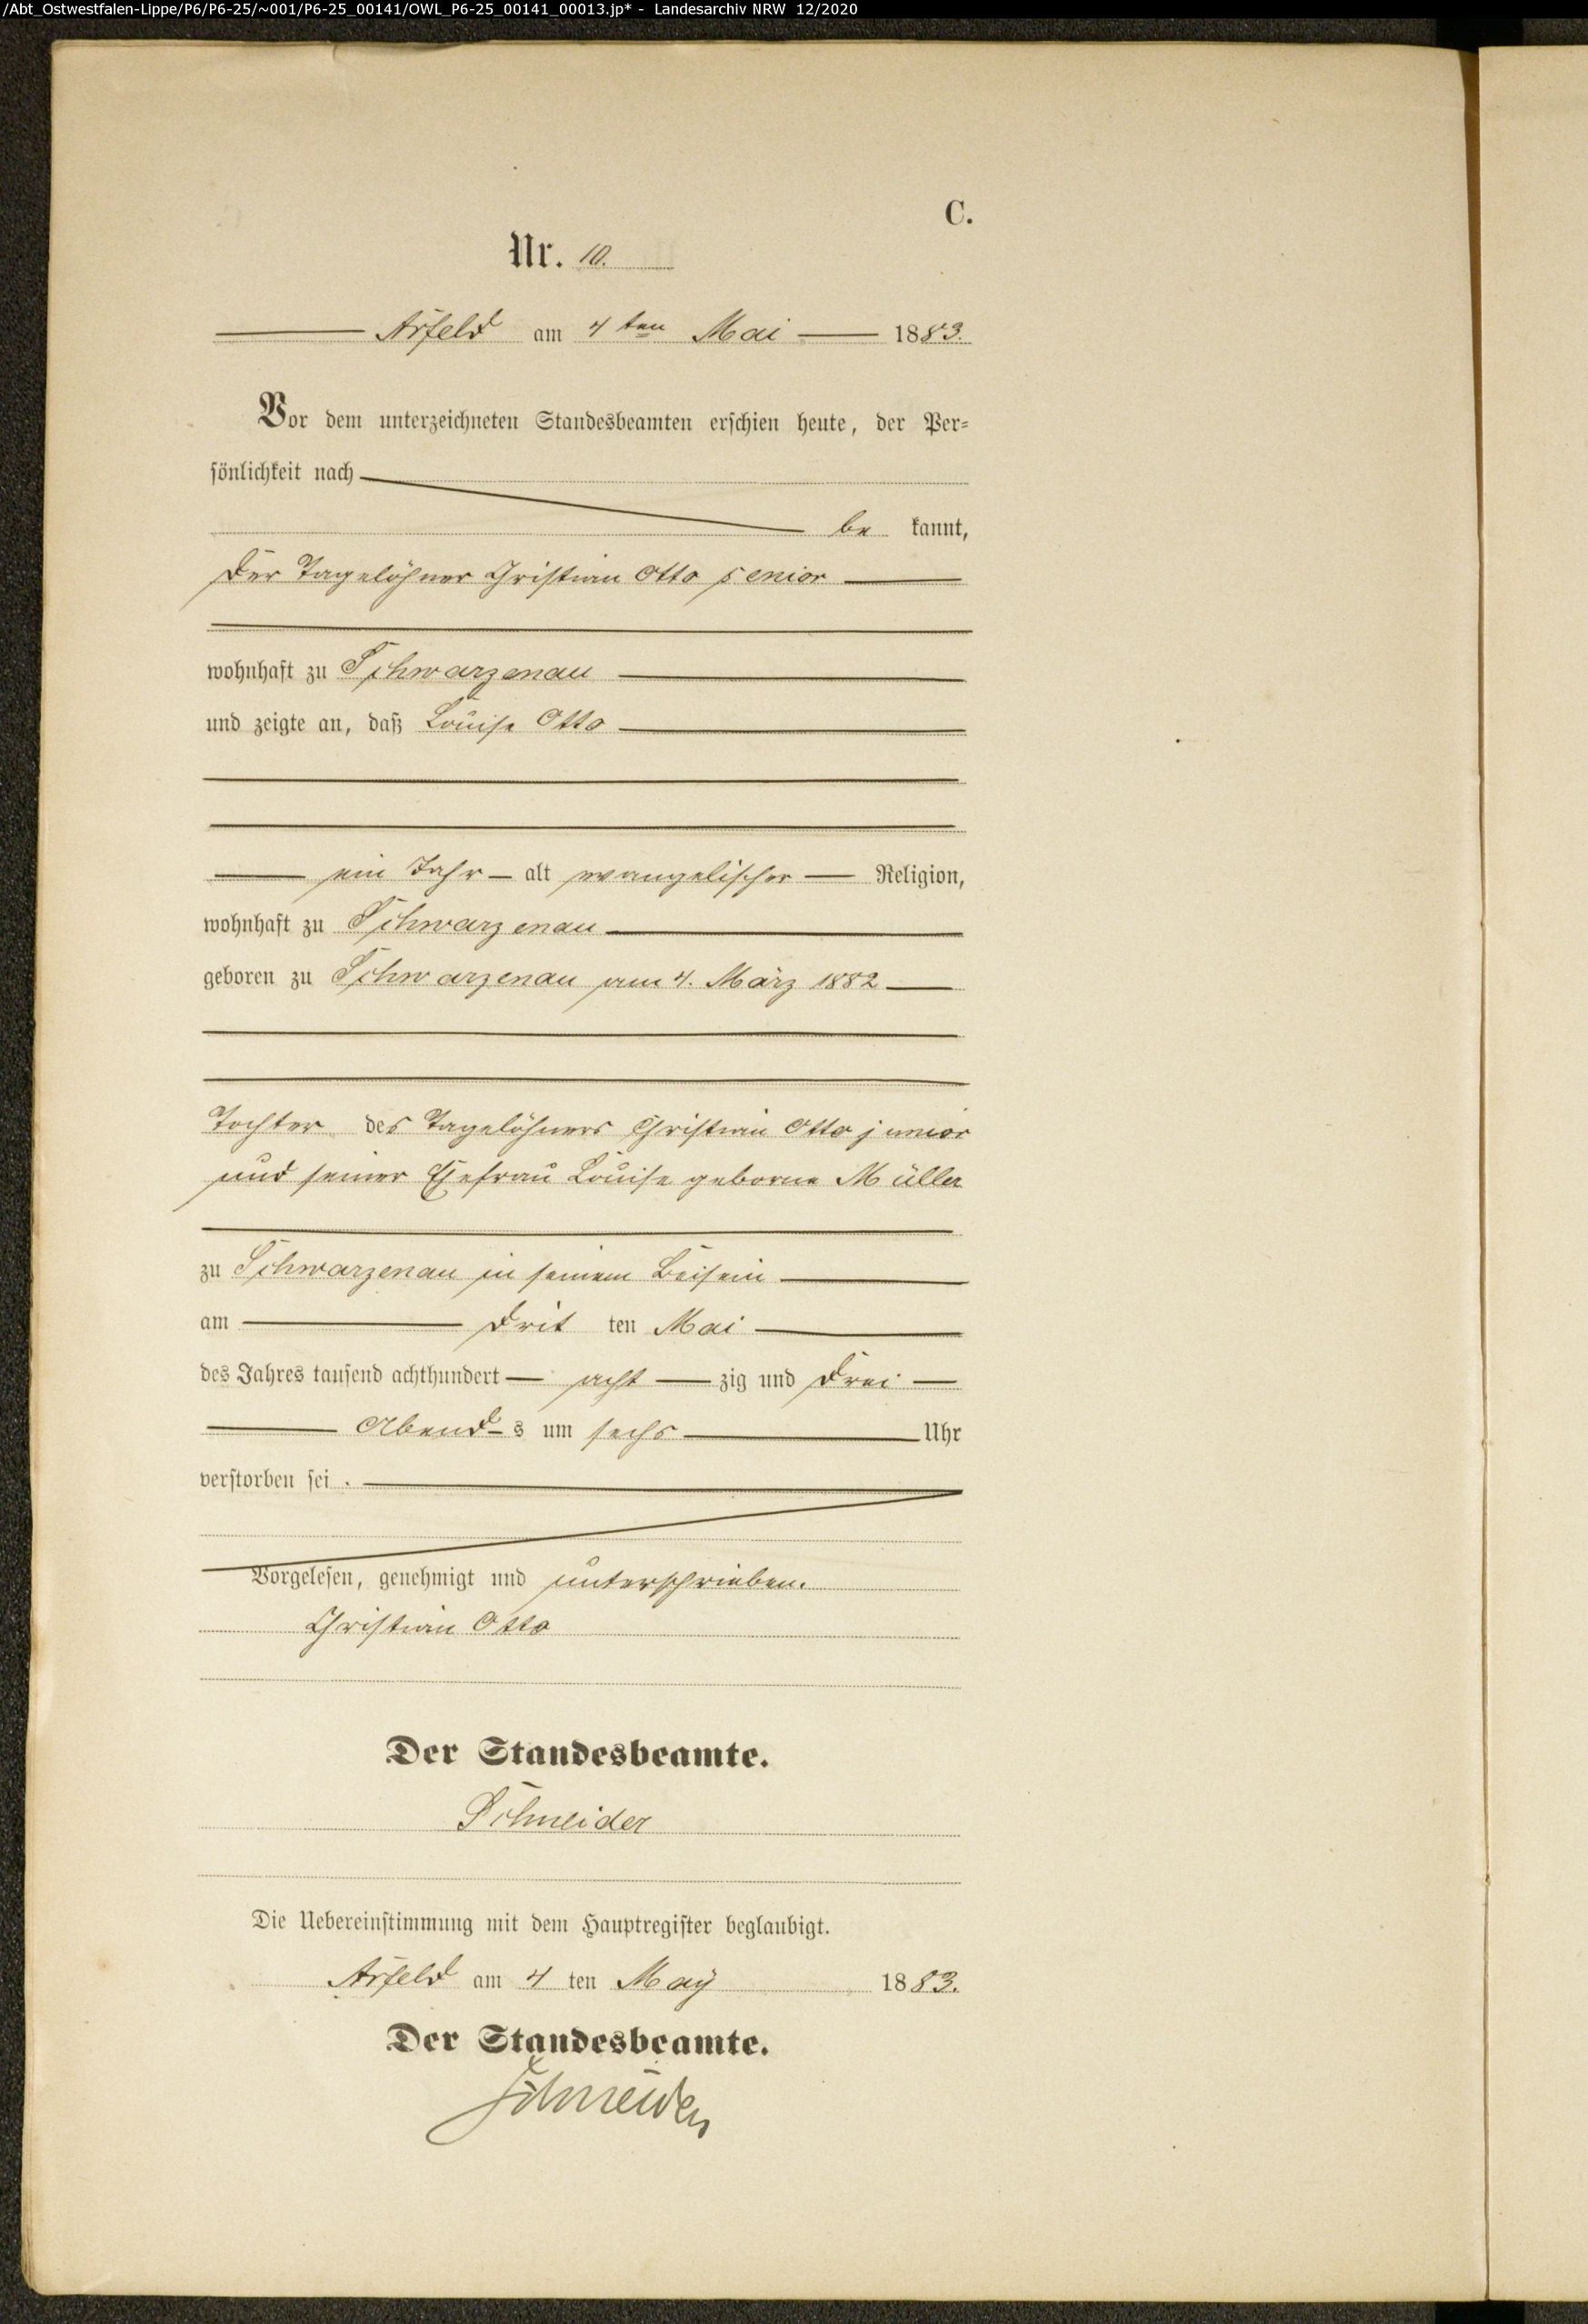 /Abt_Ostwestfalen-Lippe/P6/P6-25/~001/P6-25_00141/OWL_P6-25_00141_00013.jp* - Landesarchiv NRW 12/2020
C.
Nr. 10.
Arfeld am 4 ten Mai 1883.
Vor dem unterzeichneten Standesbeamten erschien heute, der Per-
sönlichkeit nach
be kannt,
der Tagelöhner Christian Otto senior
wohnhaft zu Schwarzenau
und zeigte an, daß Louise Otto
ein Jahr alt evangelischer Religion,
wohnhaft zu Schwarzenau
geboren zu Schwarzenau am 4. März 1882
Tochter des Tagelöhners Christian Otto junior
und seiner Ehefrau Louise geborne Müller
zu Schwarzenau in seinem Beisein
am drit ten Mai
des Jahres tausend achthundert acht zig und drei
Abend s um sechs Uhr
verstorben sei.
Vorgelesen, genehmigt und unterschrieben.
Christian Otto
Der Standesbeamte.
Schneider
Die Uebereinstimmung mit dem Hauptregister beglaubigt.
Arfeld am 4 ten May 1883.
Der Standesbeamte.
Schneider